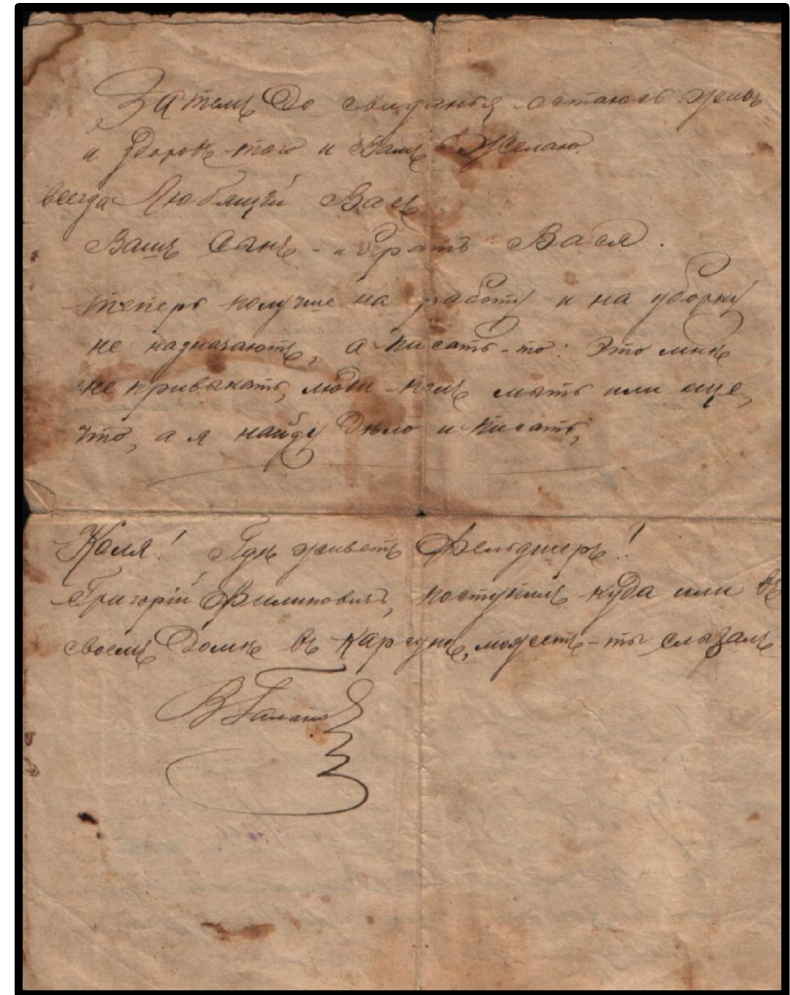 Затемъ до свиданья остаюсь живъ
и здоровъ того и Вамъ желаю.
всегда Любящій Васъ
Вашъ Сынъ - и братъ Вася.
теперь получше на работу и на уборку
не назначаютъ, а писать-то: Это мнѣ
не привыкать, люди мыть или еще,
что, а я найду дѣло и писать,
Коля! Гдѣ живетъ Фельдшеръ!
Григорій Филиповичъ, поступилъ куда или въ
своемъ Домѣ въ Карсунѣ, можетъ-ты слыхалъ